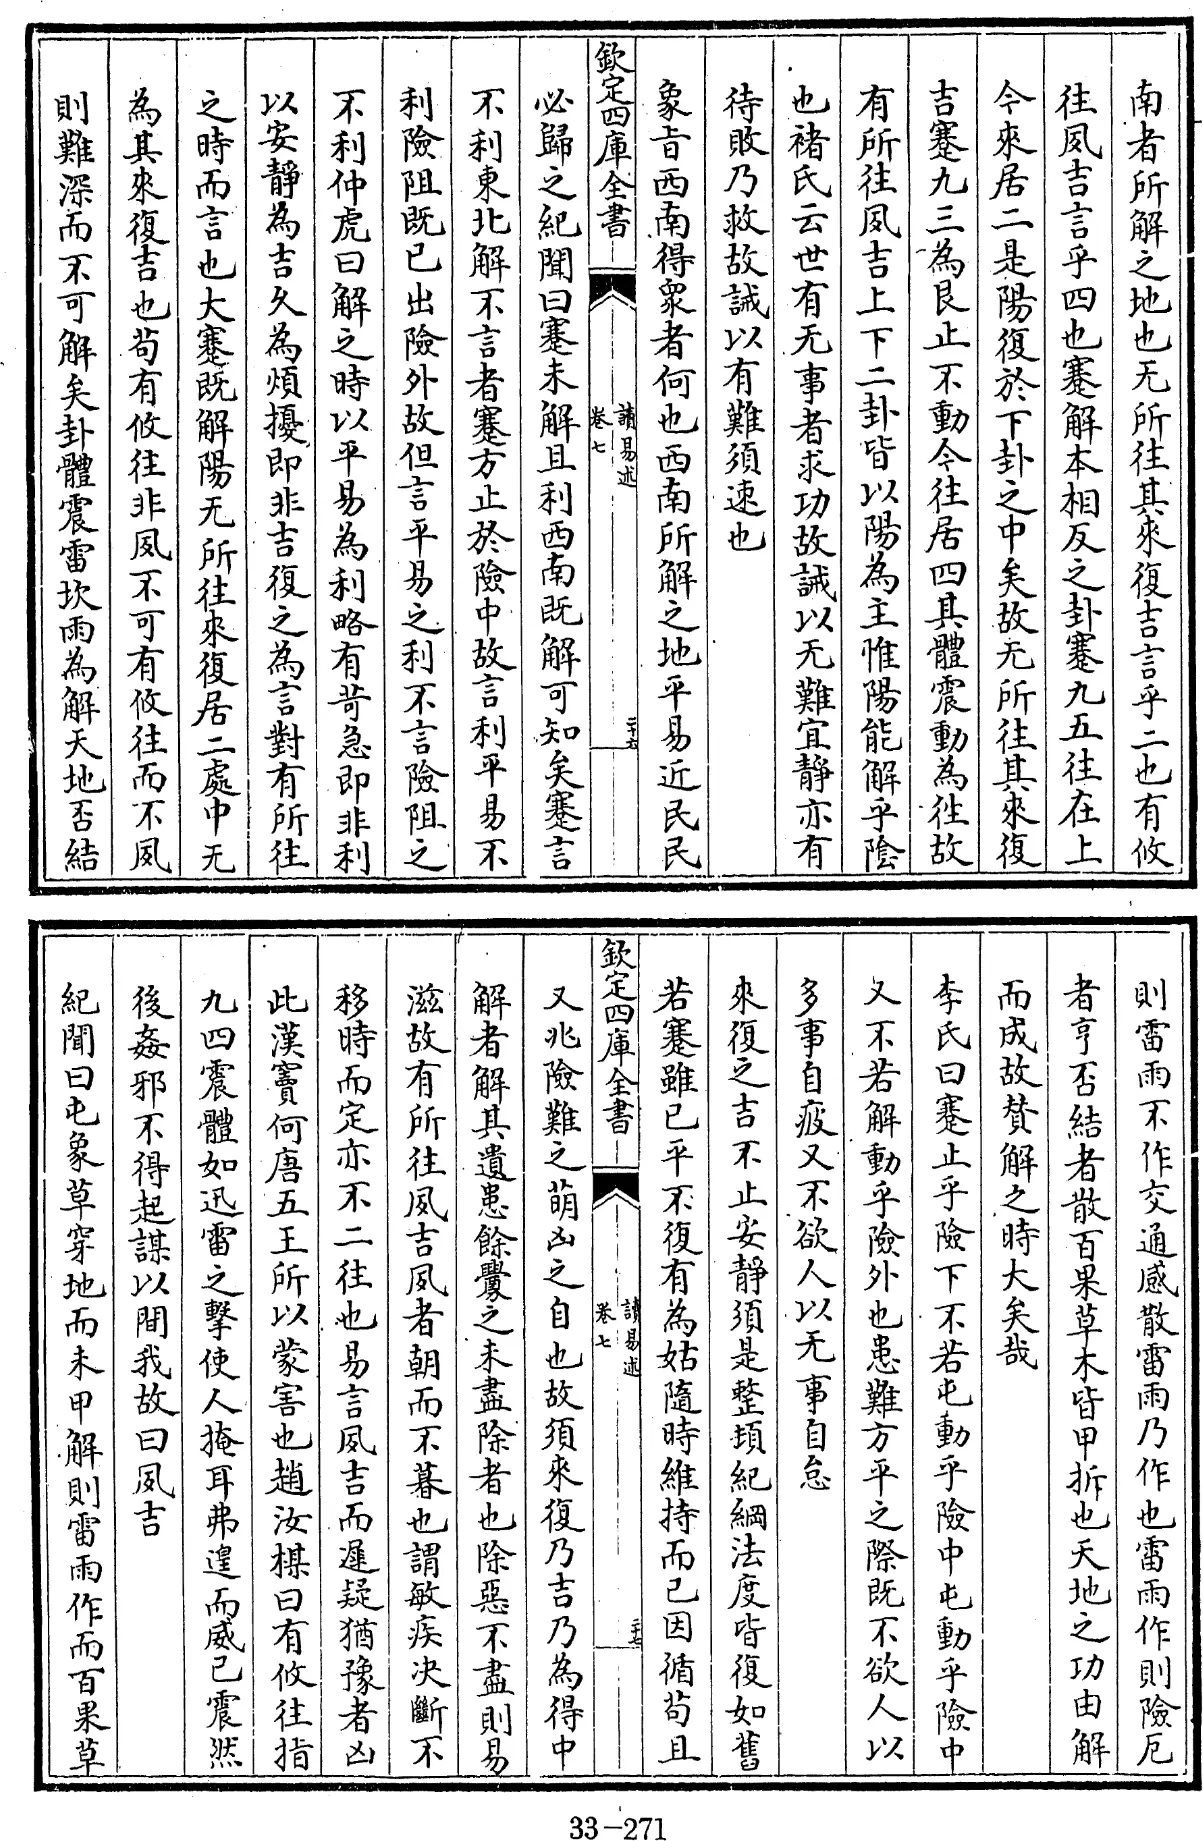 南者所解之地也无所往其來復吉言乎二也有攸
往夙吉言乎四也蹇解本相反之卦蹇九五往在上
今來居二是陽復於下卦之中矣故无所往其來復
吉蹇九三為艮止不動今往居四其體震動為往故
有所往夙吉上下二卦皆以陽為主惟陽能解乎陰
也褚氏云世有无事者求功故誡以无難宜靜亦有
待敗乃救故誡以有難須速也
象旨西南得衆者何也西南所解之地平易近民民
欽定四庫全書
讀易述
卷七
二十六
必歸之紀聞曰蹇未解且利西南既解可知矣蹇言
不利東北解不言者蹇方止於險中故言利平易不
利險阻既已出險外故但言平易之利不言險阻之
不利仲虎曰解之時以平易為利略有苛急即非利
以安靜為吉久為煩擾即非吉復之為言對有所往
之時而言也大蹇既解陽无所往來復居二處中无
為其來復吉也苟有攸往非夙不可有攸往而不夙
則難深而不可解矣卦體震雷坎雨為解天地否結
則雷雨不作交通感散雷雨乃作也雷雨作則險厄
者亨否結者散百果草木皆甲拆也天地之功由解
而成故贊解之時大矣哉
李氏曰蹇止乎險下不若屯動乎險中屯動乎險中
又不若解動乎險外也患難方平之際既不欲人以
多事自疲又不欲人以无事自怠
來復之吉不止安靜須是整頓紀綱法度皆復如舊
若蹇雖已平不復有為姑隨時維持而已因循苟且
欽定四庫全書
讀易述
卷七
二十七
又兆險難之萌凶之自也故須來復乃吉乃為得中
解者解其遺患餘釁之未盡除者也除惡不盡則易
滋故有所往夙吉夙者朝而不暮也謂敏疾決斷不
移時而定亦不二往也易言夙吉而遲疑猶豫者凶
此漢竇何唐五王所以蒙害也趙汝楳曰有攸往指
九四震體如迅雷之擊使人掩耳弗遑而威已震然
後姦邪不得起謀以間我故曰夙吉
紀聞曰屯象草穿地而未甲解則雷雨作而百果草
33-271